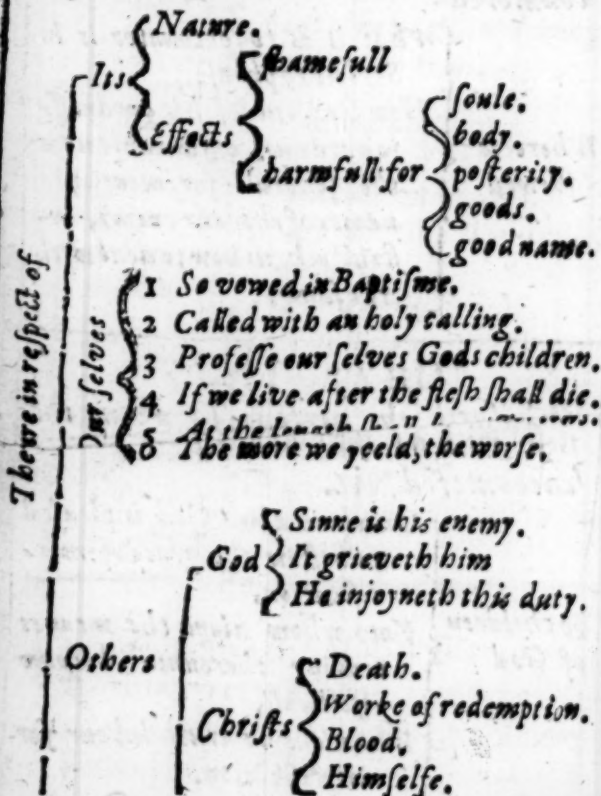 They're in respect of
Its
Nature.
Effects
ſhamefull
harmfull for
ſoule.
body.
poſterity.
goods.
good name.
Our ſelves
1 So vowed in Baptiſme.
2 Called with an holy calling.
3 Profeſſe our ſelves Gods children.
4 If we live after the fleſh ſhall die.
5 At the
6 The more we yeeld, the worſe.
Others
God
Sinne is his enemy.
It grieveth him
He injoyneth this duty.
Chriſts
Death.
Worke of redemption.
Blood.
Himſelfe.